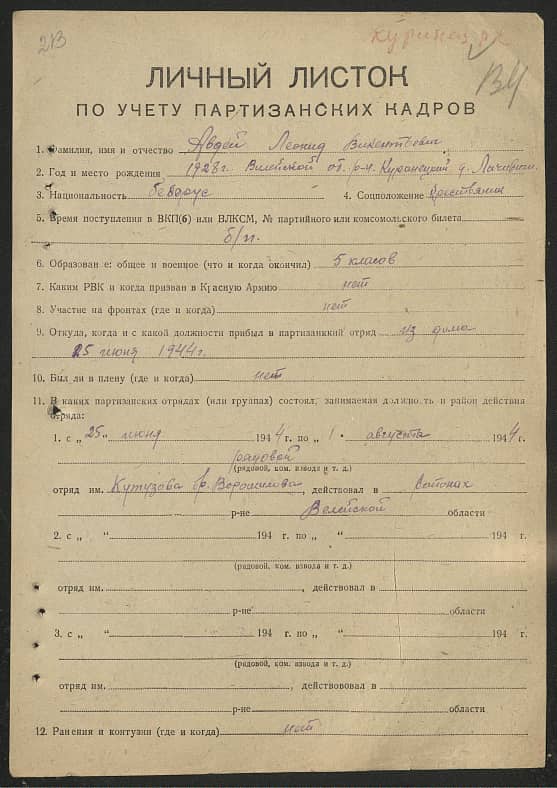 2В
Куринец р
ВИ
ЛИЧНЫЙ ЛИСТОК
ПО УЧЕТУ ПАРТИЗАНСКИХ КАДРОВ
1. Фамилия, имя и отчество Авдей Леонид Викентьевич
2. Год и место рождения 1928г. Вилейской об. р-н. Куренецкий д.
3. Национальность белорус 4. Соцположение крестьянин
5. Время поступления в ВКП(б) или ВЛКСМ, № партийного или комсомольского билета
б/п.
6. Образован е: общее и военное (что и когда окончил) 5 класов
7. Каким РВК и когда призван в Красную Армию нет
8. Участие на фронтах (где и когда) нет
9. Откуда, когда и с какой должности прибыл в партизанкий отряд из дома
25 июня 1944г.
10. Был ли в плену (где и когда) нет
11. В каких партизанских отрядах (или группах) состоял, занимаемая должность и район действия
отряда:
1. с „25„ июня 1944 г. по „1. августа 1944г.
рядовой
(рядовой, ком. взвода и т. д.)
отряд им. Кутузова бр. Ворошилова, действовал в районах
р-не Велейской области
2. с „ “ 194 г. по „ “ 194 г.
(рядовой, ком. взвода и т. д.)
отряд им. , действовал в
р-не области
3. с „ “ 194 г. по „ “ 194 г.
(рядовой, ком. взвода и т. д.)
отряд им. , действововал в
р-не области
12. Ранения и контузии (где и когда) нет